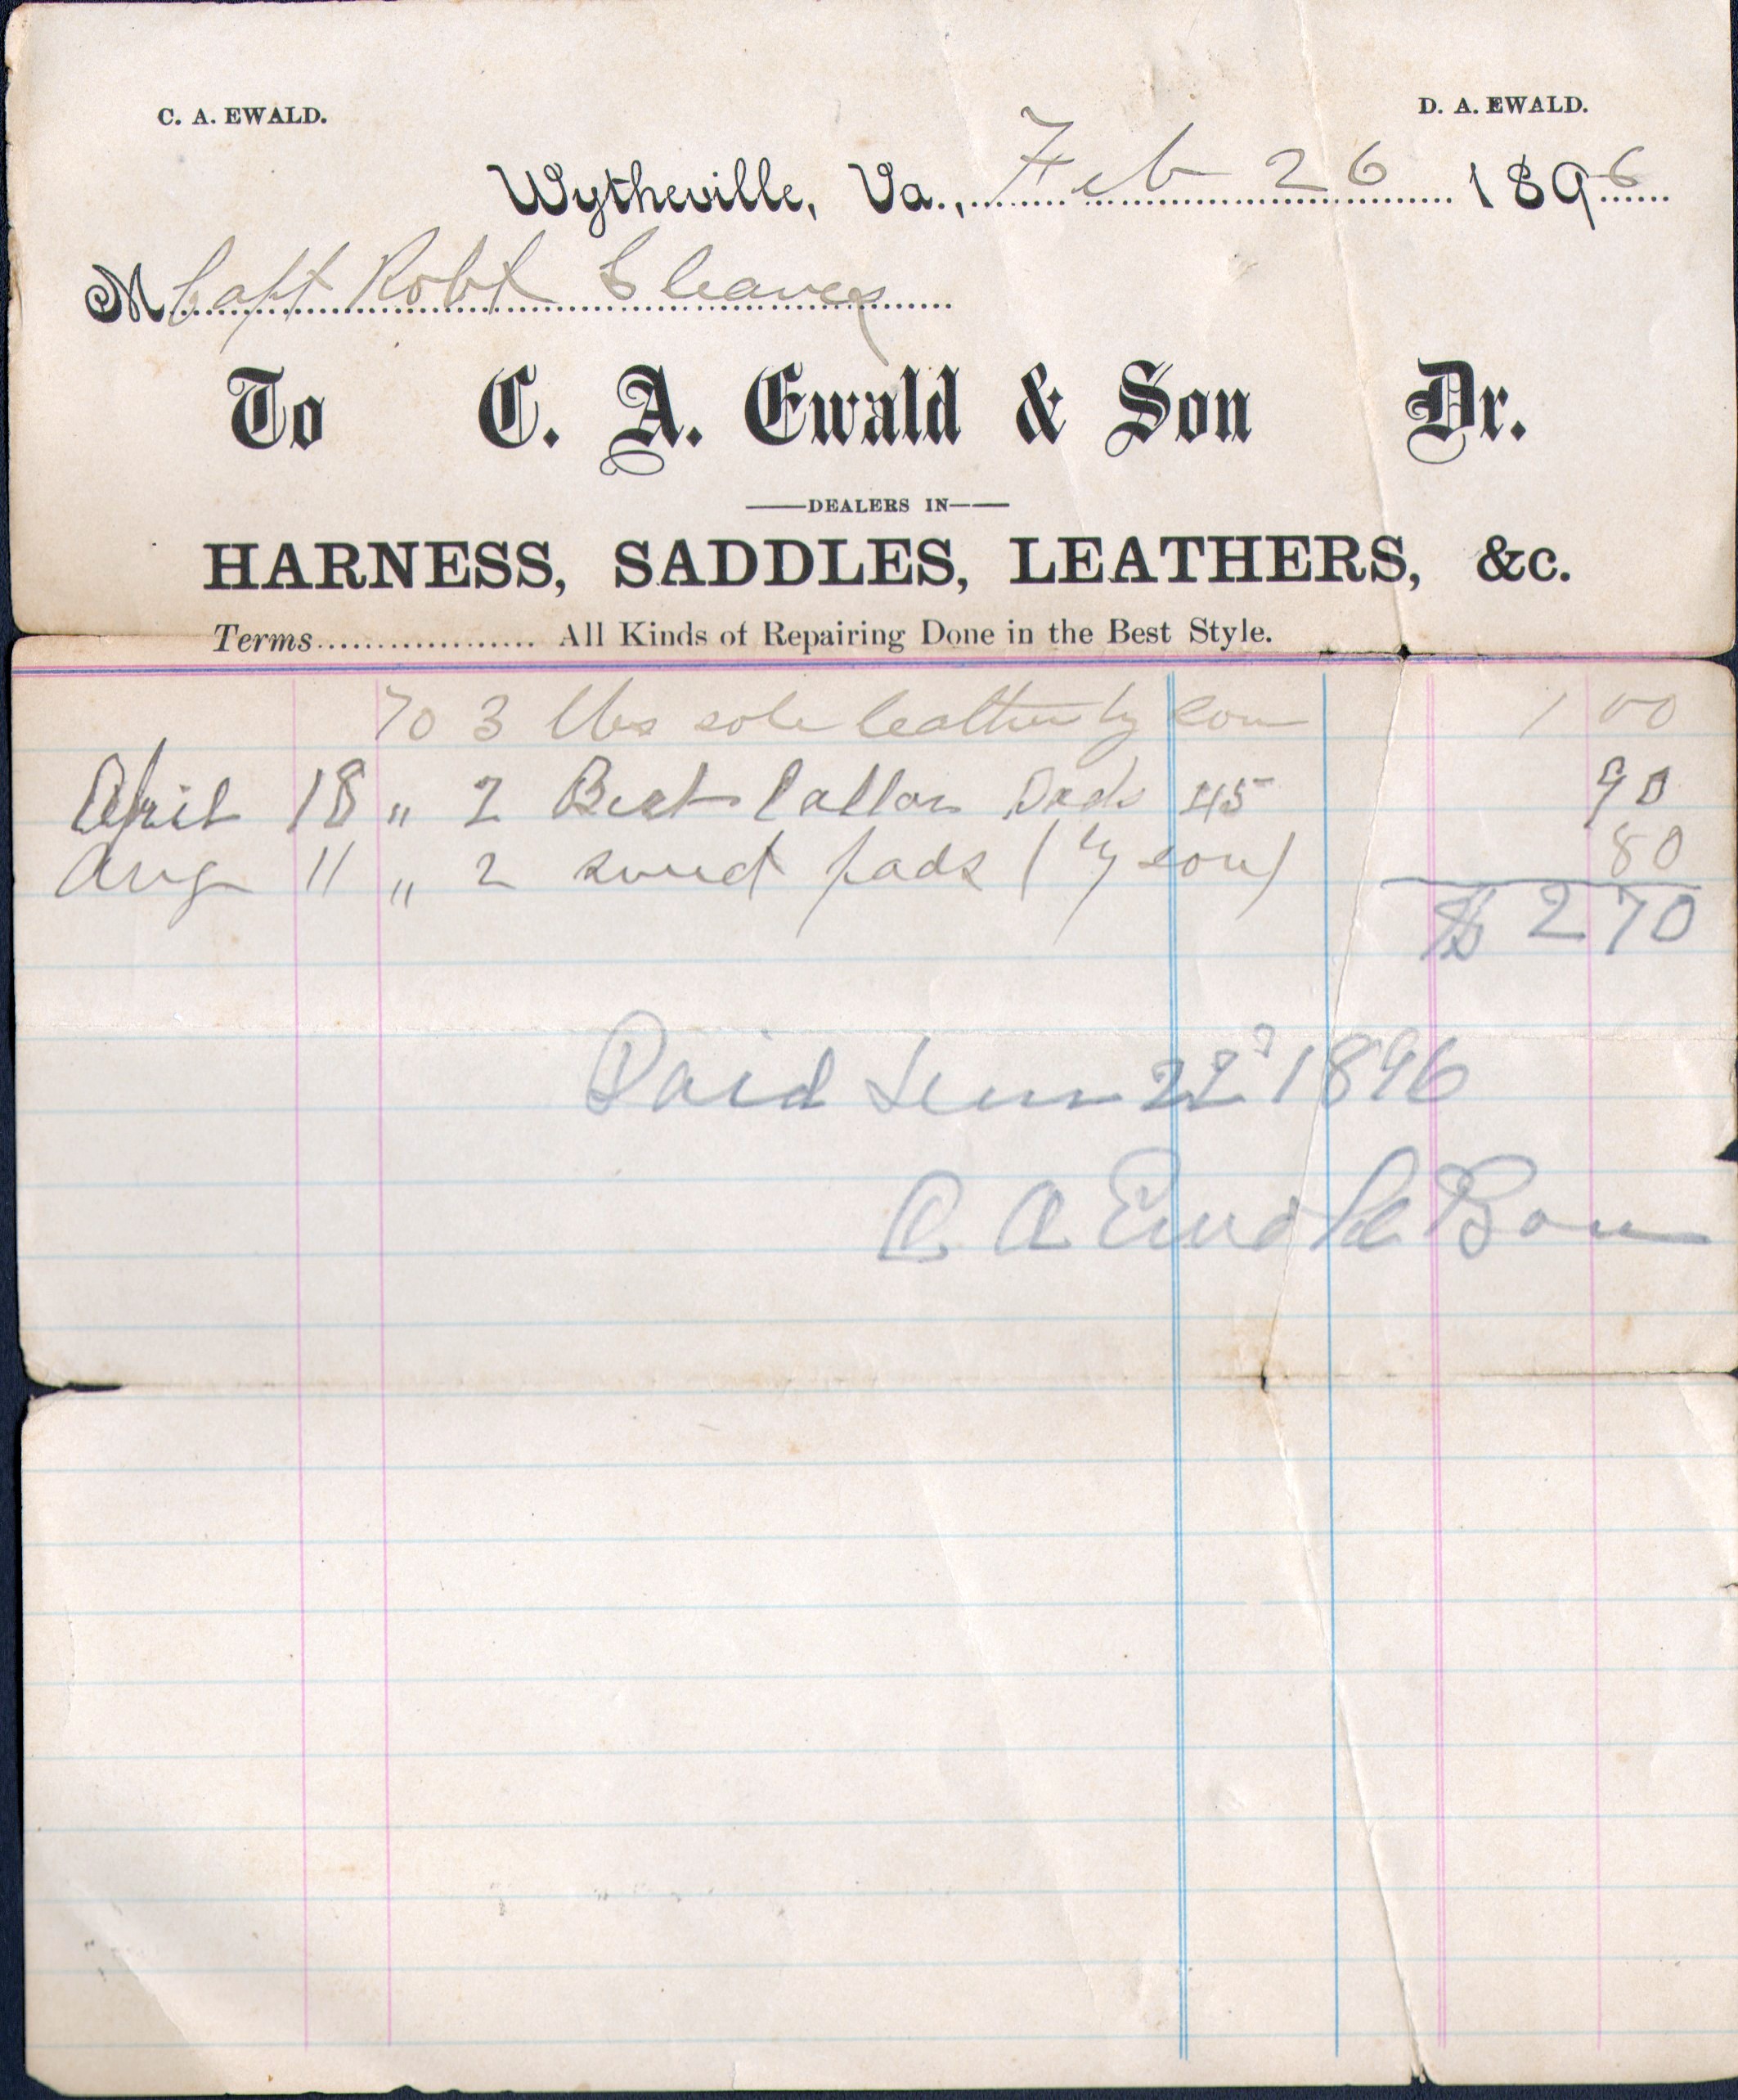 C. A. EWALD.
D. A. EWALD.
Wytheville, Va., Feb 26 1896
M Capt Robt Cleaves
To C. A. Ewald & Son Dr.
DEALERS IN
HARNESS, SADDLES, LEATHERS, &c.
Terms.................. All Kinds of Repairing Done in the Best Style.
To 3 lbs sole leather by son 1 00
April 18 " 2 Best Collar Pads 45 90
Aug 11 " 2 sweat pads (by son) 80
$ 2 70
Paid 22 1896
C A Ewald & Son